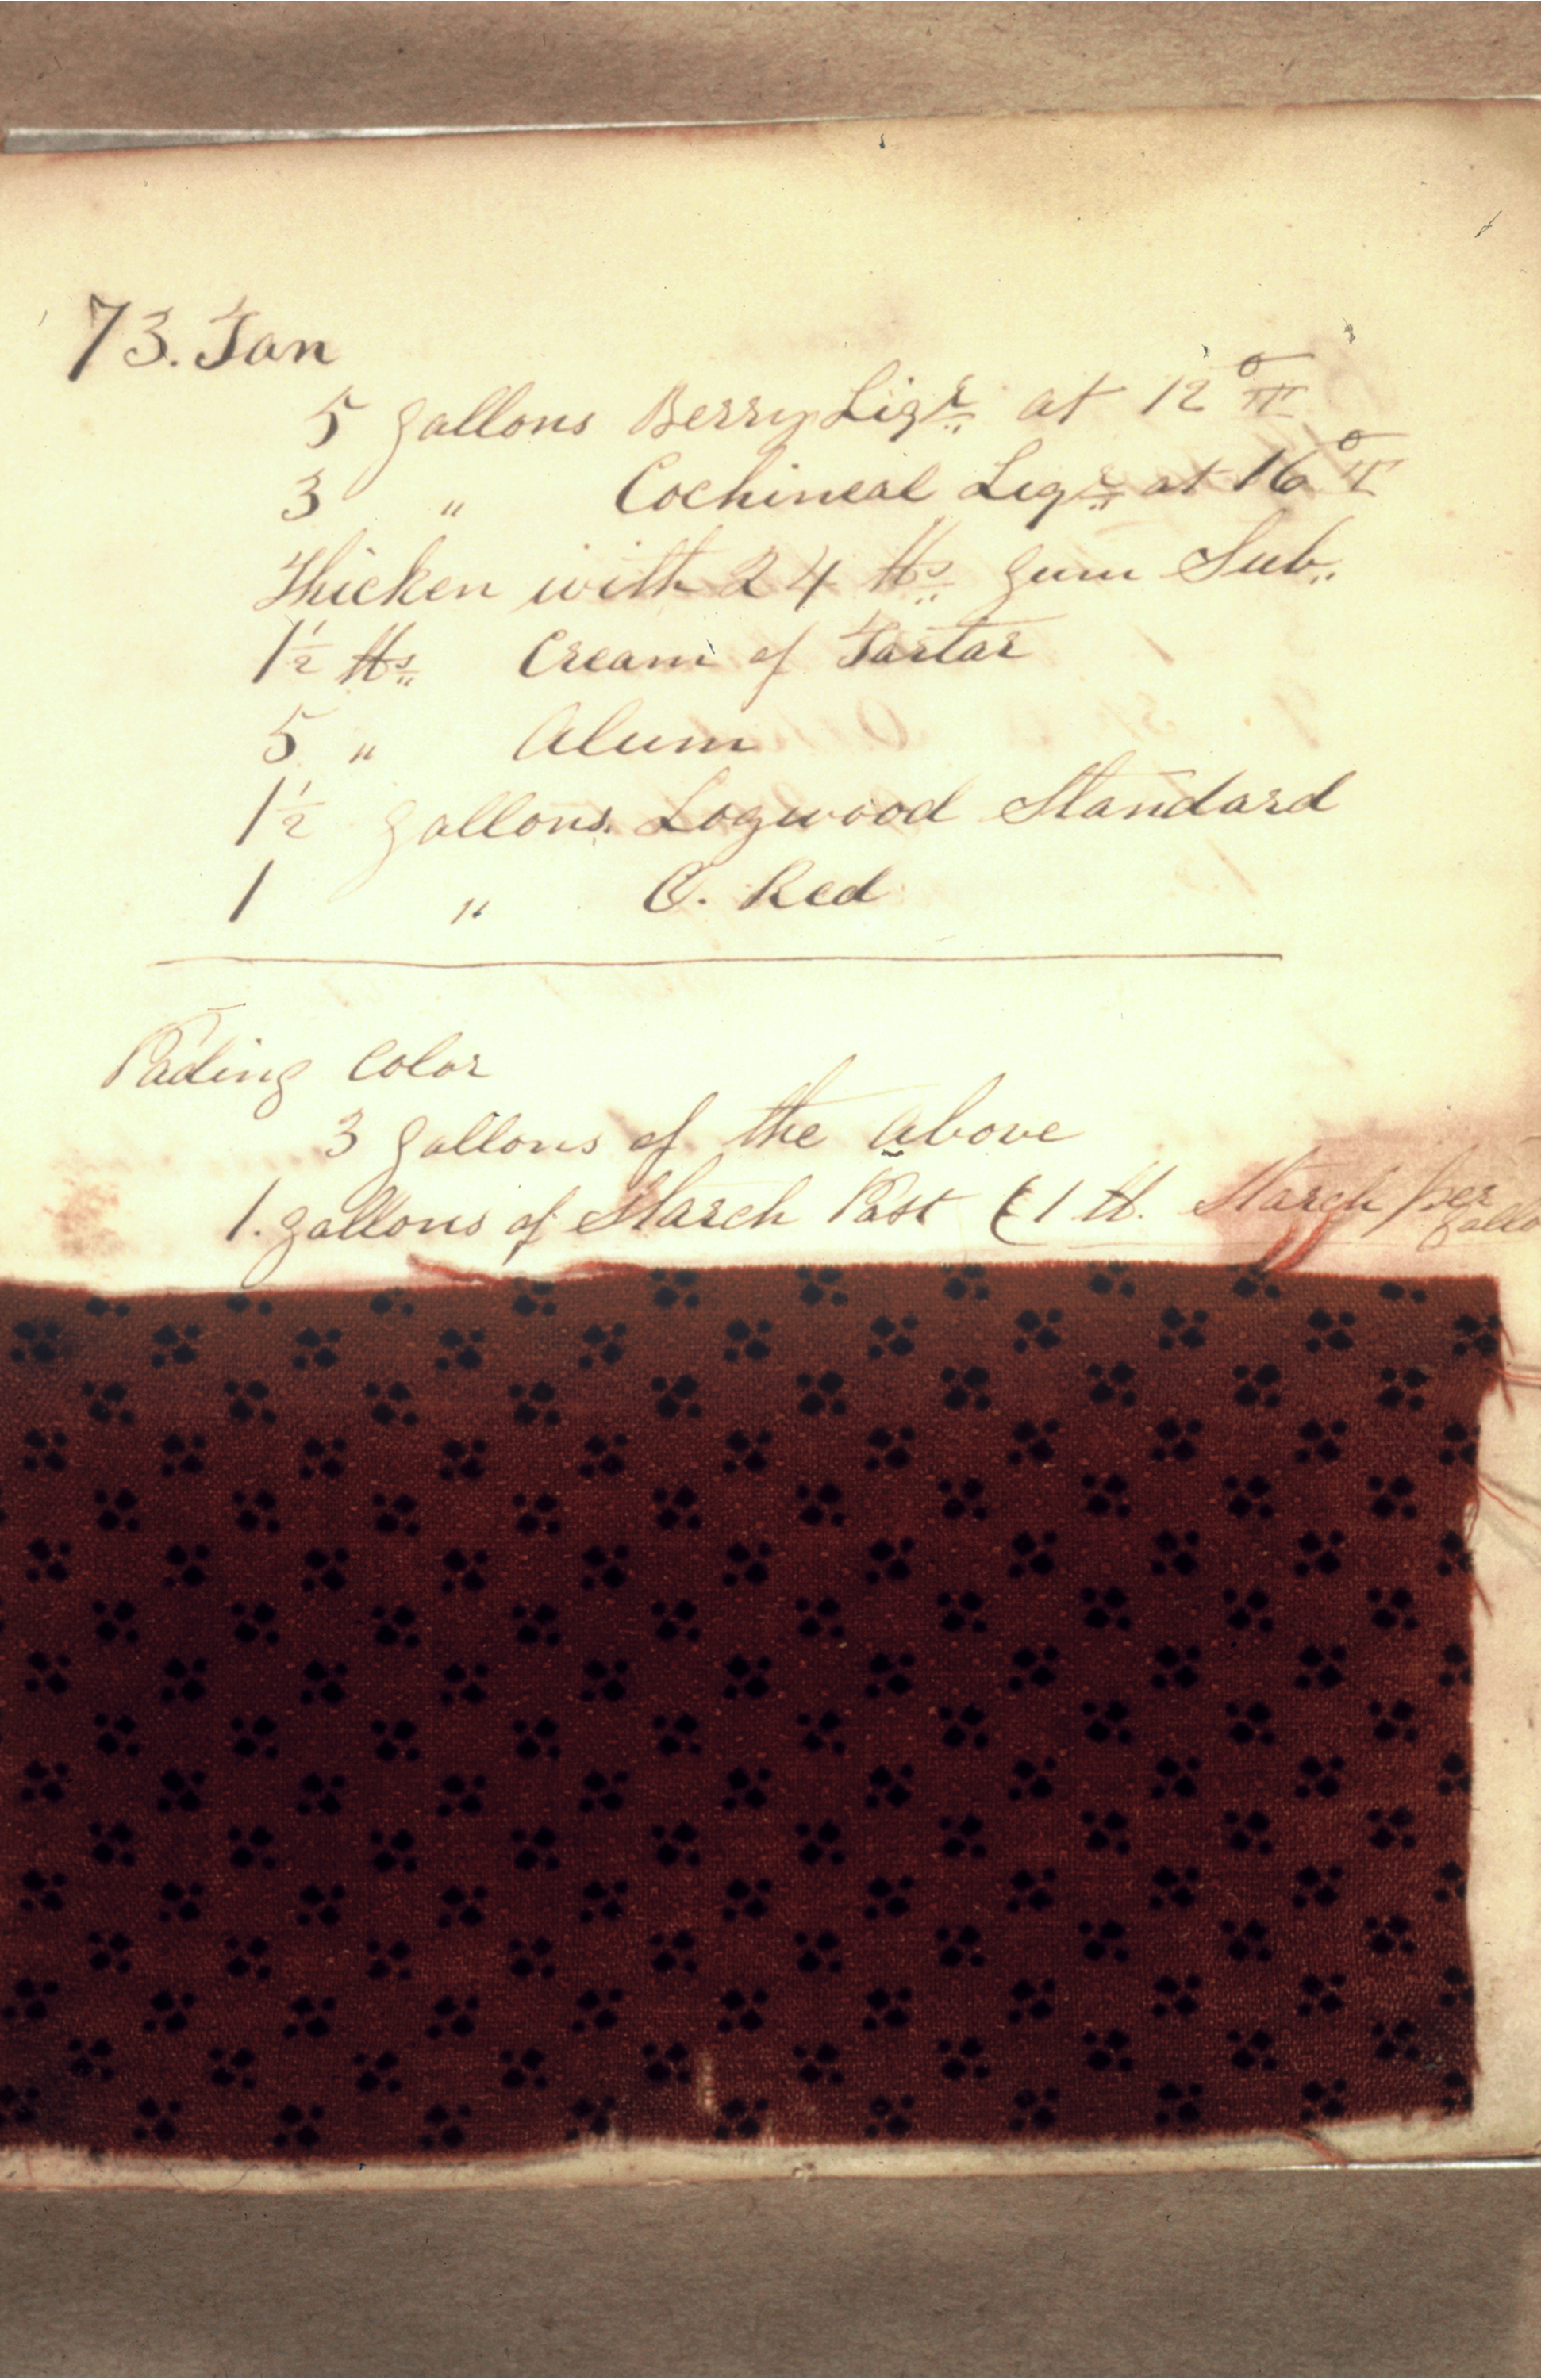 73. Tan
5 gallons Berry Liqr. at 12° Tl
3 " Cochineal Liqr. at 16° Tl
Thicken with 24 lbs. gum Sub.
1½ lbs. Cream of Tartar
5 " Alum
1½ gallons. Logwood Standard
1 " C. Red
Pading Color
3 gallons of the above
1. gallons of Starch Past (1 lb. Starch per gallo